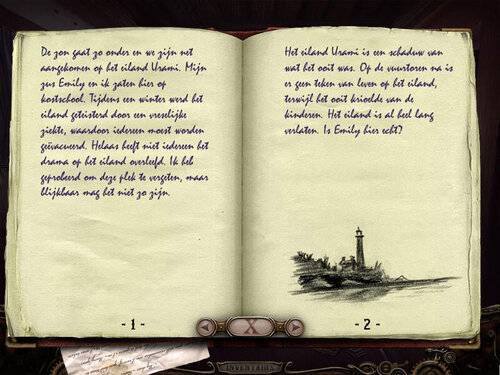 De zon gaat zo onder en we zijn net
aangekomen op het eiland Urami. Mijn
zus Emily en ik zaten hier op
kostschool. Tijdens een winter werd het
eiland geteisterd door een vreselijke
ziekte, waardoor iedereen moest worden
geëvacueerd. Helaas heeft niet iedereen het
drama op het eiland overleefd. Ik heb
geprobeerd om deze plek te vergeten, maar
blijkbaar mag het niet zo zijn.
- 1 -
Het eiland Urami is een schaduw van
wat het ooit was. Op de vuurtoren na is
er geen teken van leven op het eiland,
terwijl het ooit krioelde van de
kinderen. Het eiland is al heel lang
verlaten. Is Emily hier echt?
- 2 -
X
INVENTARIS